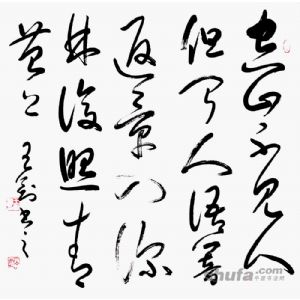 空山不見人
但聞人語響
返景入深
林復照青
苔上
hufa.com